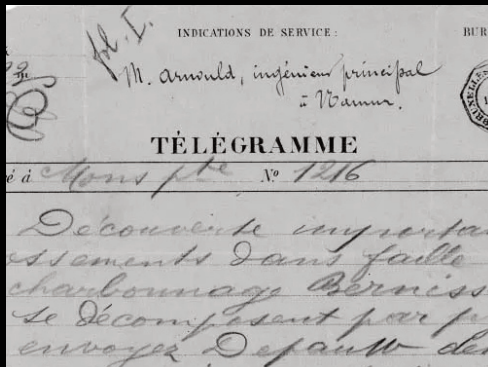 fol. I.
INDICATIONS DE SERVICE :
BUR
M. Arnould, ingénieur principal
à Namur.
BRUXELLES
TÉLÉGRAMME
é à Mons pte N° 1216
Découverte importa
ossements dans faille
charbonnage Berniss
se décomposent par p
envoyez Depauw de